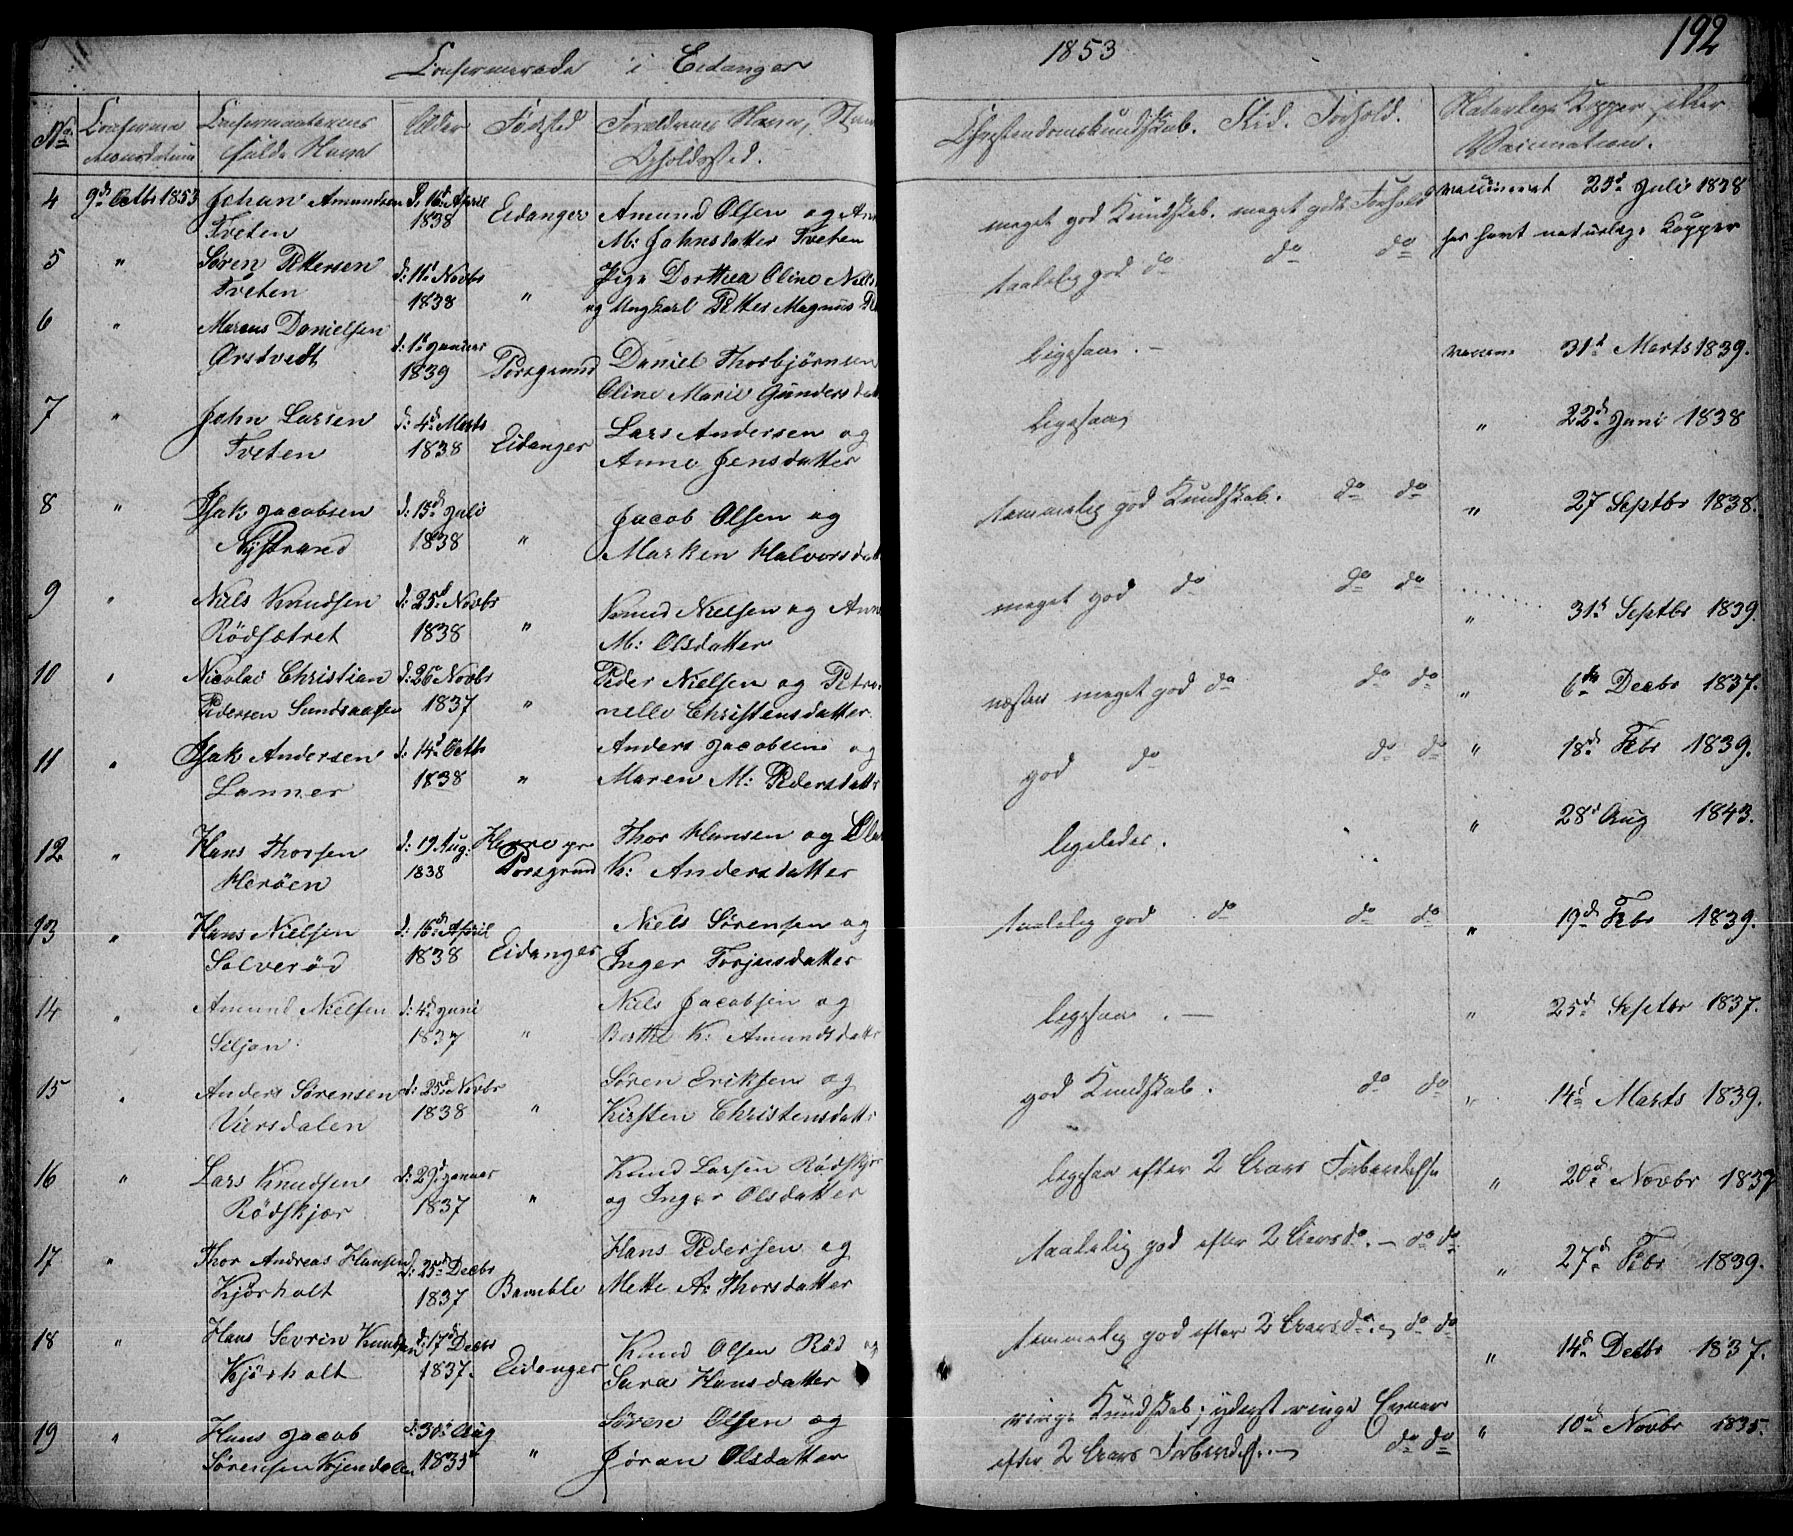 Confirmerede i Eidanger
1853
192
No
Confirma
tionsdatum
Confirmanternes
fulde Navn
Alder
Fødsted
Forældrenes Navn,
Opholdssted.
Christendomskundskab. Flid. Forhold.
Naturlige Kopper, eller
Vaccination.
4 9de Octbr 1853 Johan Amundsen d: 16de April Eidanger Amund Olsen og
Tveten 1838 M: Johnsdatter Tveten
meget god Kundskab. meget godt Forhold vaccineret 25d Juli 1838
5 " Søren Pettersen d: 11d Novbr Pige Dorthea Oline Niels
Tveten 1838 " og Ungkarl Petter Magnus
taalelig god do do do har havt naturlige Kopper
6 " Marcus Danielsen d: 1d Januar Porsgrund Daniel Thorbjørnsen
Ørstvedt 1839 Oline Marie Gunders
ligesaa. — vaccin 31d Marts 1839.
7 " John Larsen d: 4d Marts Eidanger Lars Andersen og
Tveten 1838 Anne Jensdatter
ligesaa " 22d Juni 1838
8 " Isak Jacobsen d: 15d Juli Jacob Olsen og
Nystrand 1838 " Marken Halvorsdatt
temmelig god Kundskab. do do " 27 Septbr 1838.
9 " Niels Knudsen d: 25d Novbr Knud Nielsen og Anne
Rödsætret 1838 " M: Olsdatter
meget god do do do " 31d Septbr 1839
10 " Nicolai Christian d: 26 Novbr Peder Nielsen og Petro
Pedersen Sundsaasen 1837 " nelle Christensdatter
næsten meget god do do do " 6de Decbr 1837.
11 " Isak Andersen d: 14d Octb Anders Jacobsen og
Lanner 1838 " Maren M: Pedersdatt
god do do do " 18d Febr 1839.
12 " Hans Thorsen d: 19 Aug: Herre pr Thor Hansen og
Herøen 1838 Porsgrund K: Andersdatter
ligeledes. " 28d Aug 1843.
13 " Hans Nielsen d: 16de April Eidanger Niels Sørensen og
Solverød 1838 Inger Torjusdatter
taalelig god do do do " 19d Febr 1839.
14 " Amund Nielsen d: 4d Juni Niels Jacobsen og
Siljan 1837 " Berthe K: Amundsdatt
ligesaa. — " 25d Septbr 1837.
15 " Anders Sørensen d: 25d Novbr Søren Eriksen og
Viersdalen 1838 " Kirsten Christensdatt
god Kundskab. do do " 14d Marts 1839.
16 " Lars Knudsen d: 29d Januar Knud Larsen Rödskjær
Rødskjær 1837 " og Inger Olsdatter
ligesaa efter 2 Aars Forberedelse " 20d Novbr 1837
17 " Thor Andreas Hansen d: 25d Decbr Bamble Hans Pedersen og
Kjørholt 1837 Mette A: Thorsdatter
taalelig god efter 2 Aars do. — do do " 27d Febr 1839.
18 " Hans Sevrin Knudsen d: 17d Decbr Eidanger Knud Olsen Röd og
Kjørholt 1837. Sara Hansdatter
temmelig god efter 2 Aars do do do " 14d Decbr 1837.
19 " Hans Jacob d: 30d Aug Søren Olsen og
Sørensen Kjendalen 1835 " Jøran Olsdatter
ringe Kundskab; yderst ringe Evner
efter 2 Aars Forberedelse. — do do " 10d Novbr 1835.